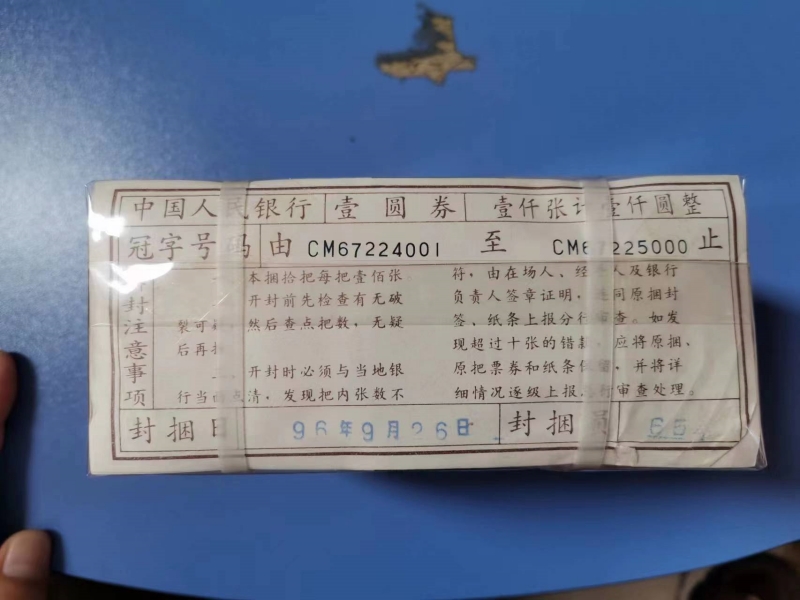 中国人民银行 壹圆券 壹仟张计壹仟圆整
冠字号码 由 CM67224001 至 CM67225000 止
封注意事项
一 本捆拾把每把壹佰张
开封前先检查有无破
裂可 然后查点把数，无疑
后再
开封时必须与当地银
行当面点清，发现把内张数不
符，由在场人、经 人及银行
负责人签章证明， 同原捆封
签、纸条上报分行审查。如发
现超过十张的错款，应将原捆、
原把票券和纸条保留，并将详
细情况逐级上报总行审查处理。
封捆日 96年9月26日 封捆员 65